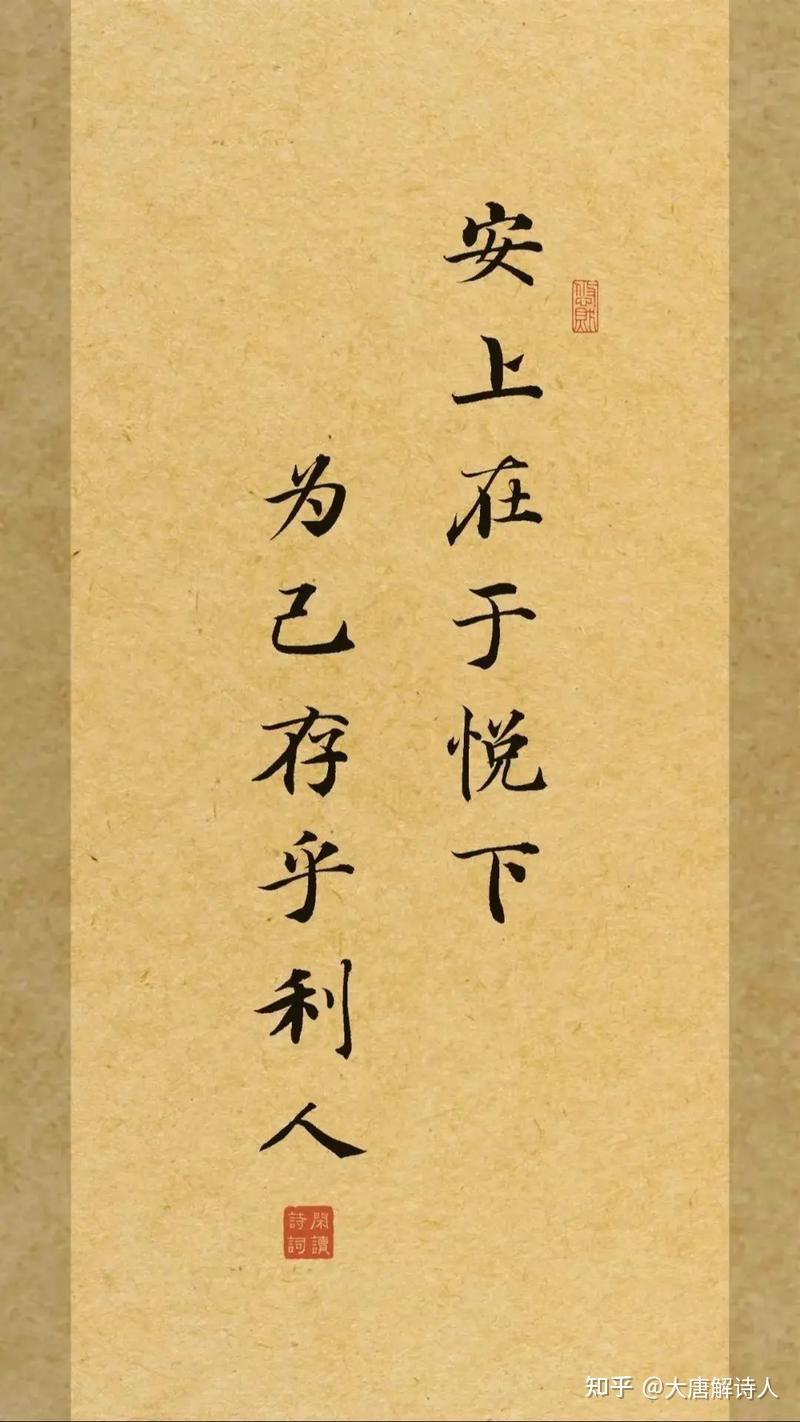 安上在于悦下
为己存乎利人
閑讀
詩詞
知乎 @大唐解诗人